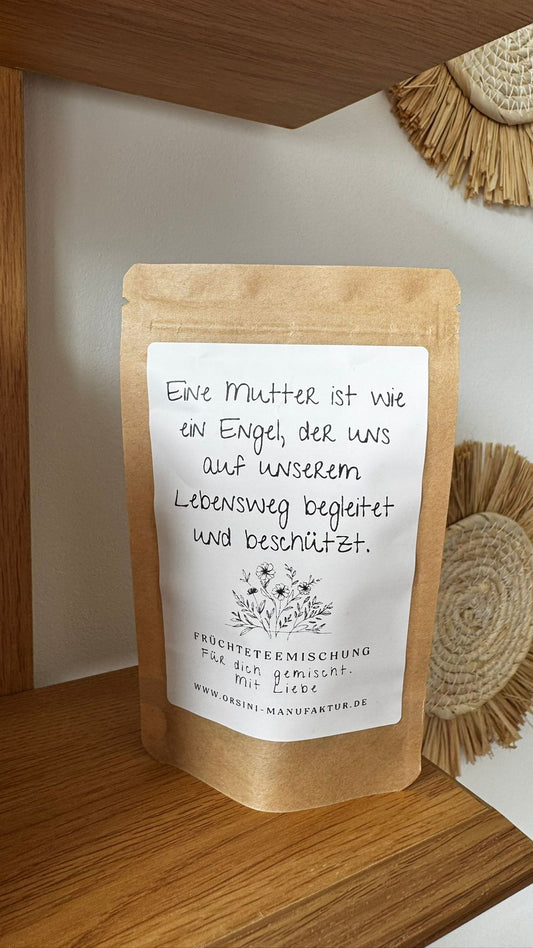 Eine Mutter ist wie
ein Engel, der uns
auf unserem
Lebensweg begleitet
und beschützt.
FRÜCHTETEEMISCHUNG
Für dich gemischt.
Mit Liebe
WWW.ORSINI-MANUFAKTUR.DE